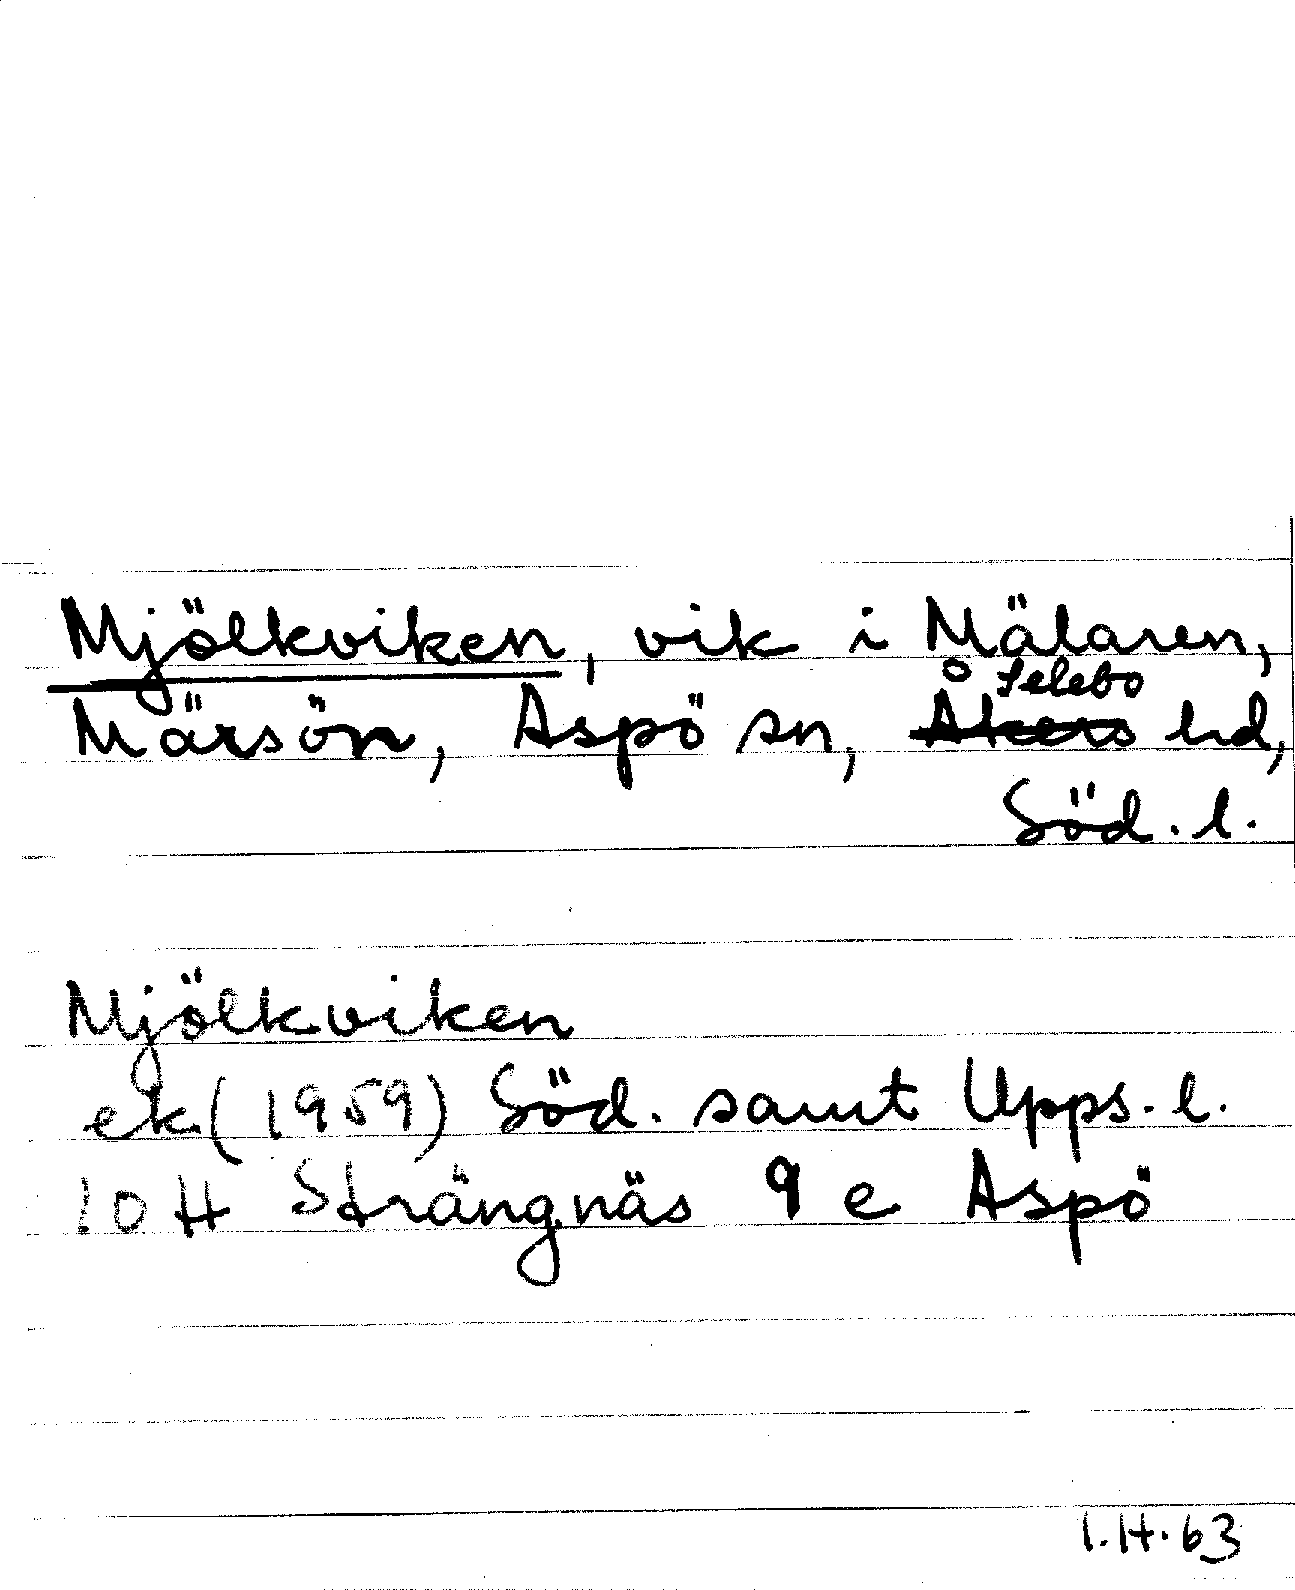 Mjölkviken, vik i Mälaren,
Selebo
Märsön, Aspö sn, Åkers hd,
Söd. l.
Mjölkviken
ek (1959) Söd. samt Upps. l.
10 H Strängnäs 9 e Aspö
I.H. 63